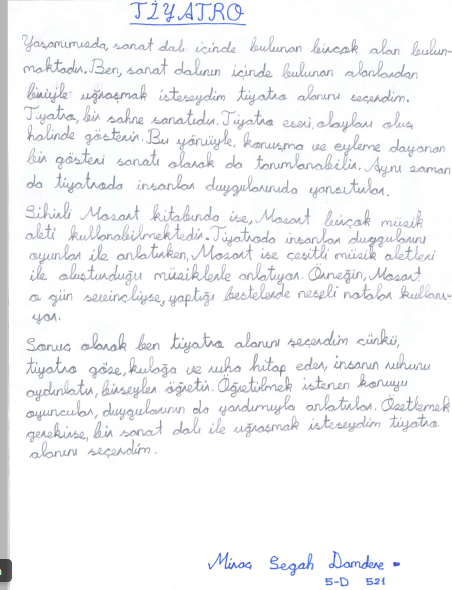 TİYATRO
Yaşamımızda, sanat dalı içinde bulunan birçok alan bulun-
maktadır. Ben, sanat dalının içinde bulunan alanlardan
biriyle uğraşmak isteseydim tiyatro alanını seçerdim.
Tiyatro, bir sahne sanatıdır. Tiyatro eseri, olayları oluş
halinde gösterir. Bu yönüyle, konuşma ve eyleme dayanan
bir gösteri sanatı olarak da tanımlanabilir. Aynı zaman
da tiyatroda insanlar duygularınıda yansıtırlar.
Sihirli Mozart kitabında ise, Mozart birçok müzik
aleti kullanabilmektedir. Tiyatroda insanlar duygularını
oyunlar ile anlatırken, Mozart ise çeşitli müzik aletleri
ile oluşturduğu müziklerle anlatıyor. Örneğin, Mozart
o gün sevinçliyse, yaptığı bestelerde neşeli notalar kullanı-
yor.
Sonuç olarak ben tiyatro alanını seçerdim çünkü,
tiyatro göze, kulağa ve ruha hitap eder, insanın ruhunu
aydınlatır, birşeyler öğretir. Öğretilmek istenen konuyu
oyuncular, duygularının da yardımıyla anlatırlar. Özetlemek
gerekirse, bir sanat dalı ile uğraşmak isteseydim tiyatro
alanını seçerdim.
Miraç Segah Damdere
5-D 521